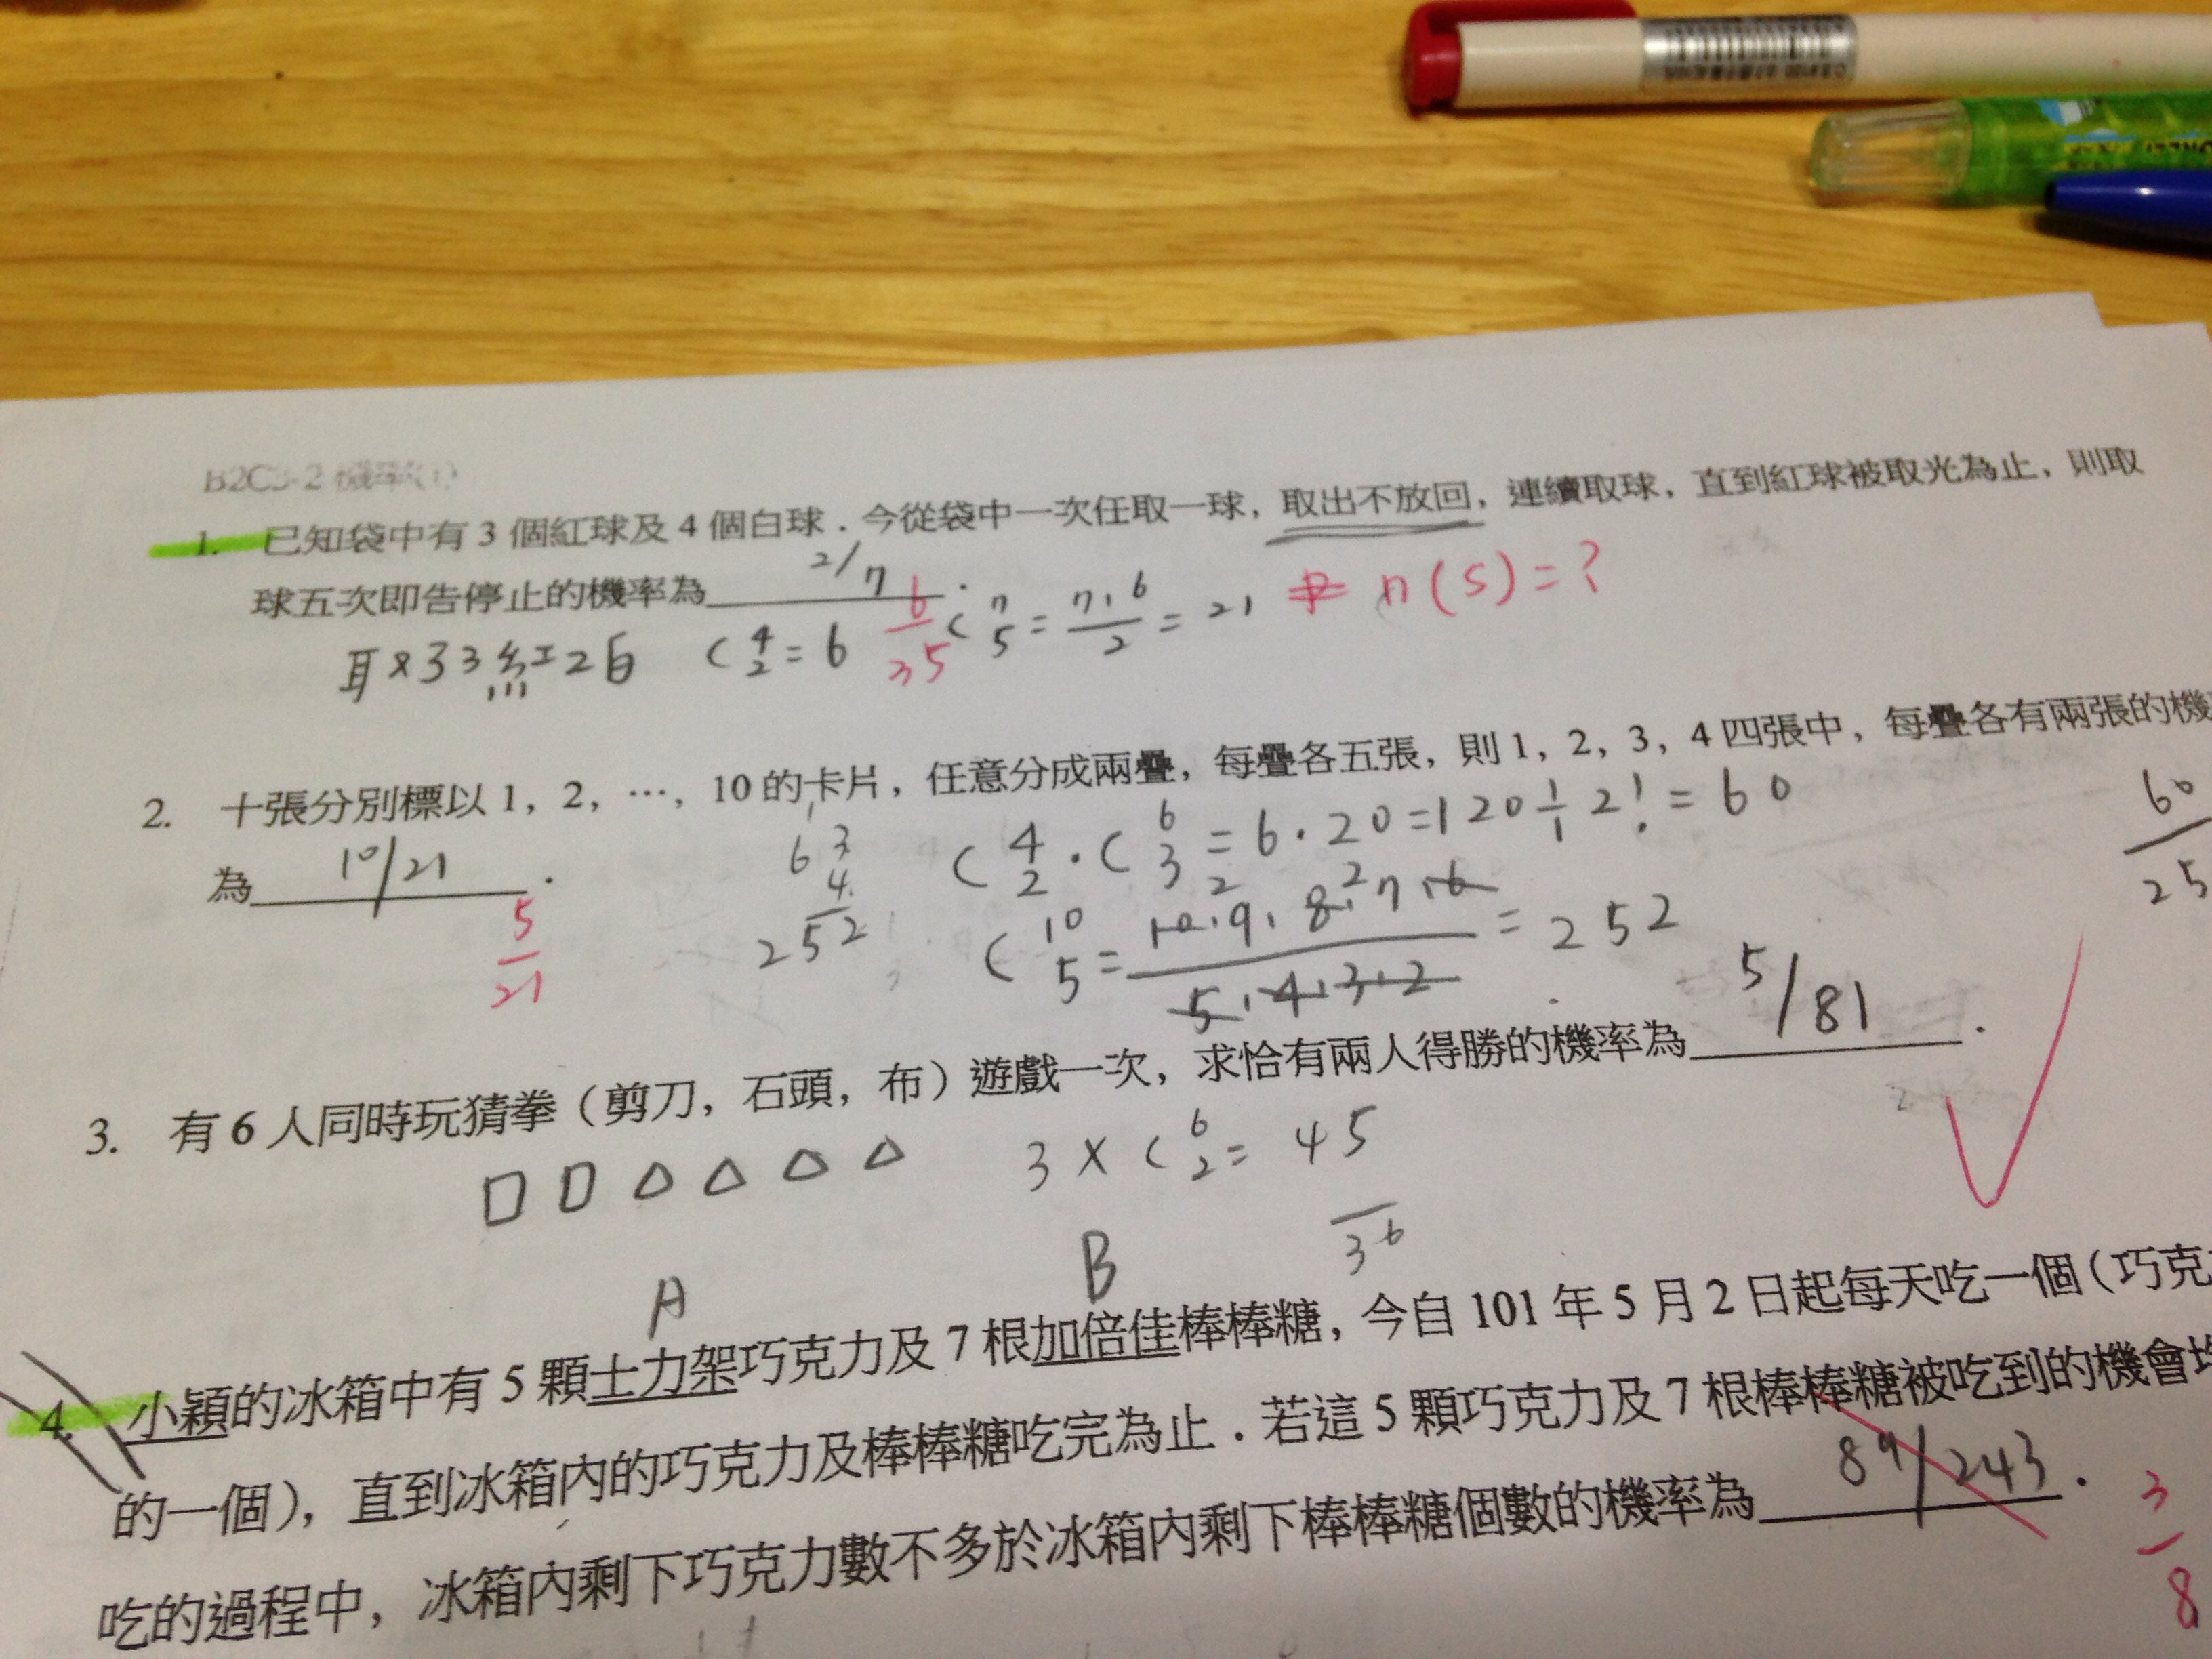 B2C3-2 機率(1)
1. 已知袋中有 3 個紅球及 4 個白球.今從袋中一次任取一球,取出不放回,連續取球,直到紅球被取光為止,則取
球五次即告停止的機率為 2/7 .
6/35
取×33紅2白 C 4 2 = 6 C 7 5 = 7.6/2 = 21
n(S)=?
2. 十張分別標以 1, 2, …, 10 的卡片,任意分成兩疊,每疊各五張,則 1, 2, 3, 4 四張中,每疊各有兩張的機
為 10/21 .
5/21
63
4
252
C 4 2 . C 6 3 = 6.20 = 120 ÷ 2! = 60
C 10 5 = 10.9.8.7.6 / 5.4.3.2 = 252
60
25
3. 有 6 人同時玩猜拳(剪刀,石頭,布)遊戲一次,求恰有兩人得勝的機率為 5/81 .
3 × C 6 2 = 45
3 6
A B
4. 小穎的冰箱中有 5 顆士力架巧克力及 7 根加倍佳棒棒糖,今自 101 年 5 月 2 日起每天吃一個(巧克
的一個),直到冰箱內的巧克力及棒棒糖吃完為止.若這 5 顆巧克力及 7 根棒棒糖被吃到的機會
吃的過程中,冰箱內剩下巧克力數不多於冰箱內剩下棒棒糖個數的機率為 89/243 .
3/8